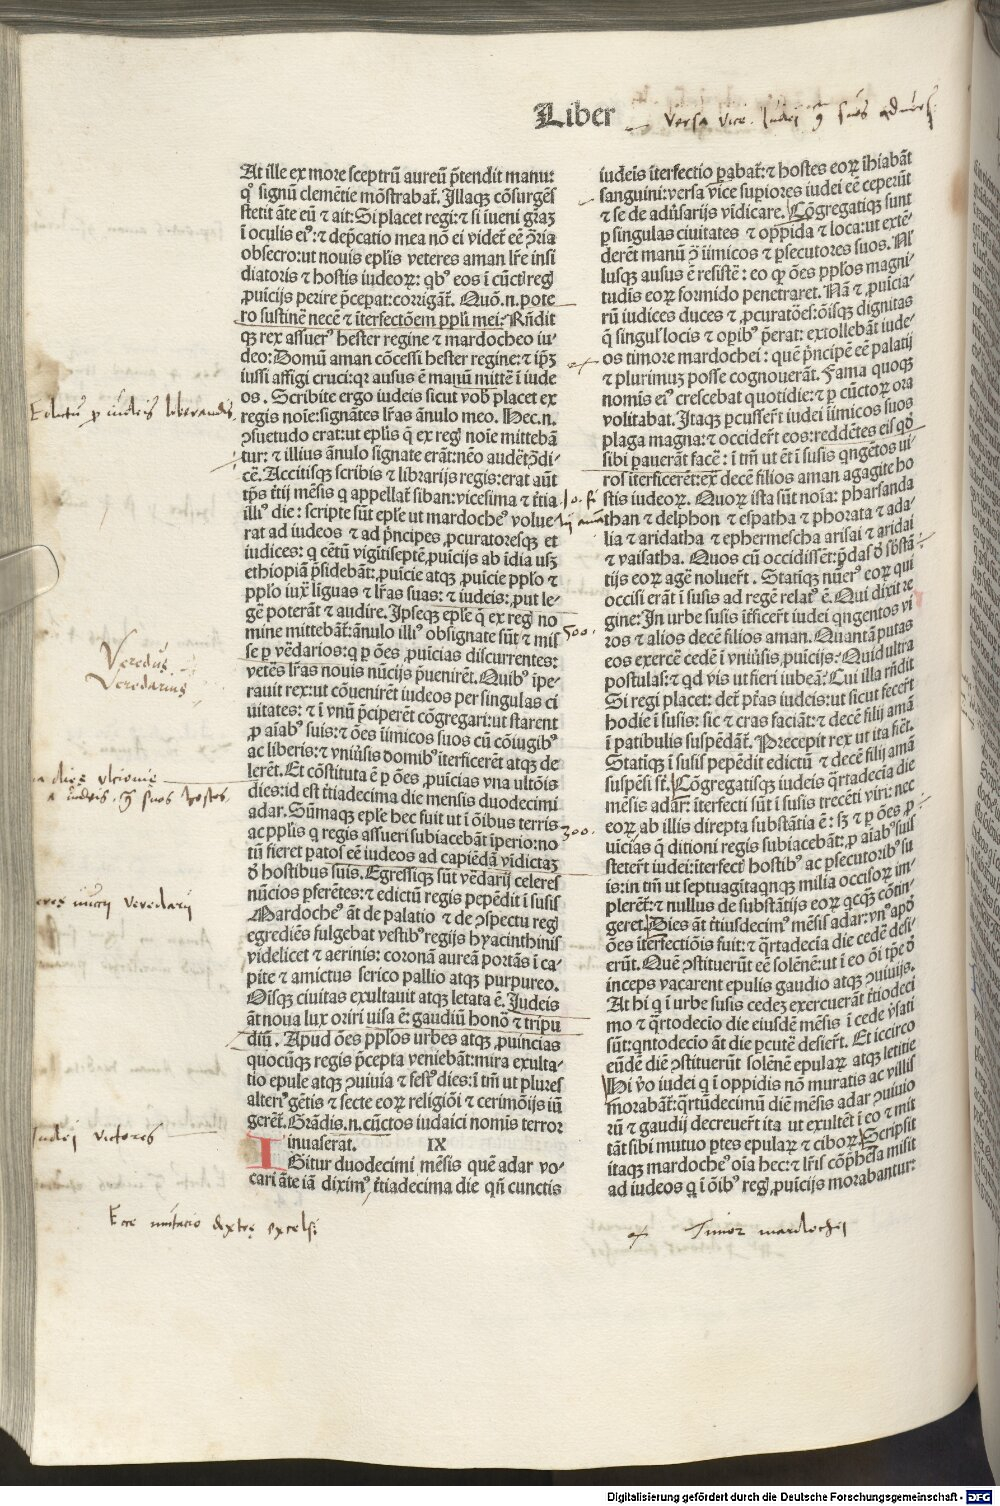 Liber
versa vice. Iudei
At ille ex more sceptrū aureū p̄tendit manu:
qꝰ signū clemētie mōstrabat̄. Illaqꝫ cōsurgēs
stetit āte eū ⁊ ait: Si placet regi: ⁊ si iueni gr̄aꝫ
ī oculis eiꝰ: ⁊ dep̄catio mea nō ei videt̄ eē ꝯ̄ria
obsecro: ut nouis epl̄is veteres aman lr̄e insi
diatoris ⁊ hostis iudeoꝝ: qbꝰ eos ī cūct̄ reḡ
ꝓuīcijs perire p̄cepat: corrigāt̄. Quō.n. pote
ro sustinē necē ⁊ īterfectōem pp̄li mei? Rn̄dit
qꝫ rex assuerꝰ hester regine ⁊ mardocheo iu⸗
deo: Domū aman cōcessi hester regine: ⁊ ip̄ꝫ
iussi affigi cruci: qꝛ ausus ē manū mittē ī iude
os. Scribite ergo iudeis sicut vob̄ placet ex
regis noīe: signātes lr̄as ānulo meo. Hec.n.
ꝯsuetudo erat: ut epl̄is q̄ ex reg̣ noīe mittebā
tur: ⁊ illius ānulo signate erāt: nēo audēt ꝯ̄di⸗
cē. Accitisqꝫ scribis ⁊ librarijs regis: erat aūt
tp̄s t̄tij mēsis q appellat̄ siban: vicesima ⁊ t̄tia
illiꝰ die: scripte sūt epl̄e ut mardocheꝰ volue
rat ad iudeos ⁊ ad p̄ncipes ꝓcuratoresqꝫ et
iudices: q cētū vigītiseptē ꝓuīcijs ab īdia usqꝫ
ethiopiā p̄sidebāt: ꝓuīcie atqꝫ ꝓuīcie pp̄lo ⁊
pp̄lo iux̄ līguas ⁊ lr̄as suas: ⁊ iudeis: ꝓut le⸗
gē poterāt ⁊ audire. Ipseqꝫ epl̄e q̄ ex reg̣ no
mine mittebāt̄: ānulo illiꝰ obsignate sūt ⁊ mis
se ꝑ vēdarios: q ꝑ oēs ꝓuīcias discurrentes:
vetēs lr̄as nouis nūcijs p̄uenirēt. Quibꝰ īpe⸗
rauit rex: ut cōuenirēt iudeos per singulas ci
uitates: ⁊ ī vnū p̄ciperēt cōgregari: ut starent
ꝓ aīabꝰ suis: ⁊ oēs īimicos suos cū cōiugibꝰ
ac liberis: ⁊ vniūsis domibꝰ īterficerēt atqꝫ de
lerēt. Et cōstituta ē ꝑ oēs ꝓuīcias vna ultōis
dies: id est t̄tiadecima die mensis duodecimi
adar. Sūmaqꝫ epl̄e hec fuit ut ī oībus terris
ac pp̄lis q regis assueri subiacebāt īperio: no
tū fieret patos eē iudeos ad capiēdā vīdictaꝫ
ꝺ̄ hostibus suis. Egressiqꝫ sūt vēdarij celeres
nūcios ꝑferētes: ⁊ edictū regis pepēdit ī susis
Mardocheꝰ āt de palatio ⁊ de ꝯspectu reg̣
egrediēs fulgebat vestibꝰ regijs hyacinthinis
videlicet ⁊ aerinis: coronā aureā portās ī ca⸗
pite ⁊ amictus serico pallio atqꝫ purpureo.
Oīsqꝫ ciuitas exultauit atqꝫ letata ē. Iudeis
āt noua lux oriri uisa ē: gaudiū honō ⁊ tripu
diū. Apud oēs pp̄los urbes atqꝫ ꝓuincias
quocūqꝫ regis p̄cepta veniebāt: mira exulta⸗
tio epule atqꝫ ꝯuiuia ⁊ festꝰ dies: ī tm̄ ut plures
alterꝰ gētis ⁊ secte eoꝝ religiōi ⁊ cerimōijs iū
gerēt̄. Grādis.n. cūctos iudaici nomīs terror
inuaserat. IX
IGitur duodecimi mēsis quē adar vo⸗
cari āte iā diximꝰ t̄tiadecima die qn̄ cunctis
iudeis īterfectio ꝑabat̄: ⁊ hostes eoꝝ īhiabāt
sanguini: versa vice suꝑiores iudei eē ceperūt
⁊ se de adūsarijs vīdicare. Cōgregatiqꝫ sunt
ꝑ singulas ciuitates ⁊ opp̄ida ⁊ loca: ut extē⸗
derēt manū ꝯ̄ īimicos ⁊ ꝑsecutores suos. Nl̄
lusqꝫ ausus ē resistē: eo qꝫ oēs pp̄los magni⸗
tudīs eoꝝ formido penetraret. Nā ⁊ ꝓuīcia⸗
rū iudices duces ⁊ ꝓcuratōes: oīsqꝫ dignitas
q̄ singul̄ locis ⁊ opibꝰ p̄erat: extollebāt iude⸗
os timore mardochei: quē p̄ncipē eē palatij
⁊ plurimuꝫ posse cognouerāt. Fama quoqꝫ
nomīs eiꝰ crescebat quotidie: ⁊ ꝑ cūctoꝝ ora
volitabat. Itaqꝫ ꝑcusser̄t iudei īimicos suos
plaga magna: ⁊ occider̄t eos: reddētes eis qꝺ̄
sibi ꝑauerāt facē: ī tm̄ ut ēt ī susis qngētos ui⸗
ros īterficerēt: ex̄ decē filios aman agagite ho
stis iudeoꝝ. Quoꝝ ista sūt noīa: pharsanda
than ⁊ delphon ⁊ espatha ⁊ phorata ⁊ ada⸗
lia ⁊ aridatha ⁊ ephermescha arisai ⁊ aridai
⁊ vaisatha. Quos cū occidissēt: p̄das ꝺ̄ sb̄stā
tijs eoꝝ agē noluer̄t. Statiqꝫ nūerꝰ eoꝝ qui
occisi erāt ī susis ad regē relatꝰ ē. Qui dixit re
gine: In urbe susis īt̄ficer̄t iudei qngentos vi
ros ⁊ alios decē filios aman. Quantā putas
eos exercē cedē ī vniūsis ꝓuīcijs: Quid ultra
postulas: ⁊ qd vis ut fieri iubeā? Cui illa rn̄dit
Si regi placet: det̄ pt̄as iudeis: ut sicut fecer̄t
hodie ī susis: sic ⁊ cras faciāt: ⁊ decē filij amā
ī patibulis suspēdāt̄. Precepit rex ut ita fiēt.
Statiqꝫ ī susis pepēdit edictū ⁊ decē filij amā
suspēsi st̄. Cōgregatisqꝫ iudeis q̄rtadecia die
mēsis adar: īterfecti sūt ī susis trecēti viri: nec
eoꝝ ab illis direpta substātia ē: sꝫ ⁊ ꝑ oēs ꝓ
uīcias q̄ ditioni regis subiacebāt: ꝓ aīabꝰ suis
steter̄t iudei: īterfectꝭ hostibꝰ ac ꝑsecutoribꝰ su
is: in tm̄ ut septuagītaqnqꝫ milia occisoꝝ im⸗
plerēt̄: ⁊ nullus de substātijs eoꝝ qcqꝫ cōtin⸗
geret. Dies āt t̄tiusdecimꝰ mēsis adar: vnꝰ apꝺ̄
oēs īterfectiōis fuit: ⁊ q̄rtadecia die cedē desi⸗
erūt. Quē ꝯstituerūt eē solēnē: ut ī eo oī tp̄e ꝺ̄
inceps vacarent epulis gaudio atqꝫ ꝯuiuijs.
At hi q ī urbe susis cedeꝫ exercuerāt t̄tiodeci
mo ⁊ q̄rtodecio die eiusdē mēsis ī cede v̄sati
sūt: qntodecio āt die peutē desier̄t. Et iccirco
eūdē diē ꝯstituerūt solēnē epulaꝝ atqꝫ letitie
Hi v̄o iudei q ī oppidis nō muratis ac villis
morabāt̄: q̄rtūdecimū diē mēsis adar ꝯuiuio
rū ⁊ gaudij decreuer̄t ita ut exultēt ī eo ⁊ mit
tāt sibi mutuo ꝑtes epulaꝝ ⁊ ciboꝝ. Scripsit
itaqꝫ mardocheꝰ oīa hec: ⁊ lr̄is cōp̄hēsa misit
ad iudeos q ī oībꝰ reg̣ ꝓuīcijs morabantur:
Edictū ꝑ iudeis liberandis.
Veredus
Veredarius
dies ultionis
iudeis suos hostes.
nuncij veredarij
Iudei victores
500.
300.
Ecce mutacio dextrę excelsi
Timor mardochei
Digitalisierung gefördert durch die Deutsche Forschungsgemeinschaft - DFG